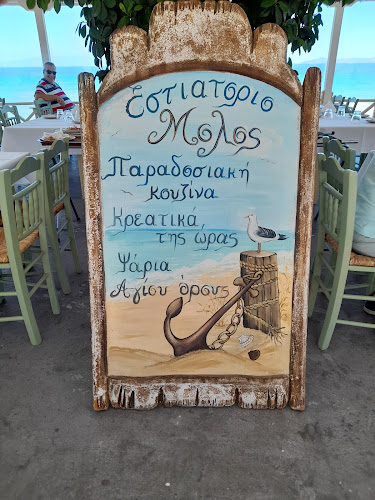 Εστιατόριο
Μόλος
Παραδοσιακή
κουζίνα
Κρεατικά
της ώρας
Ψάρια
Αγίου όρους